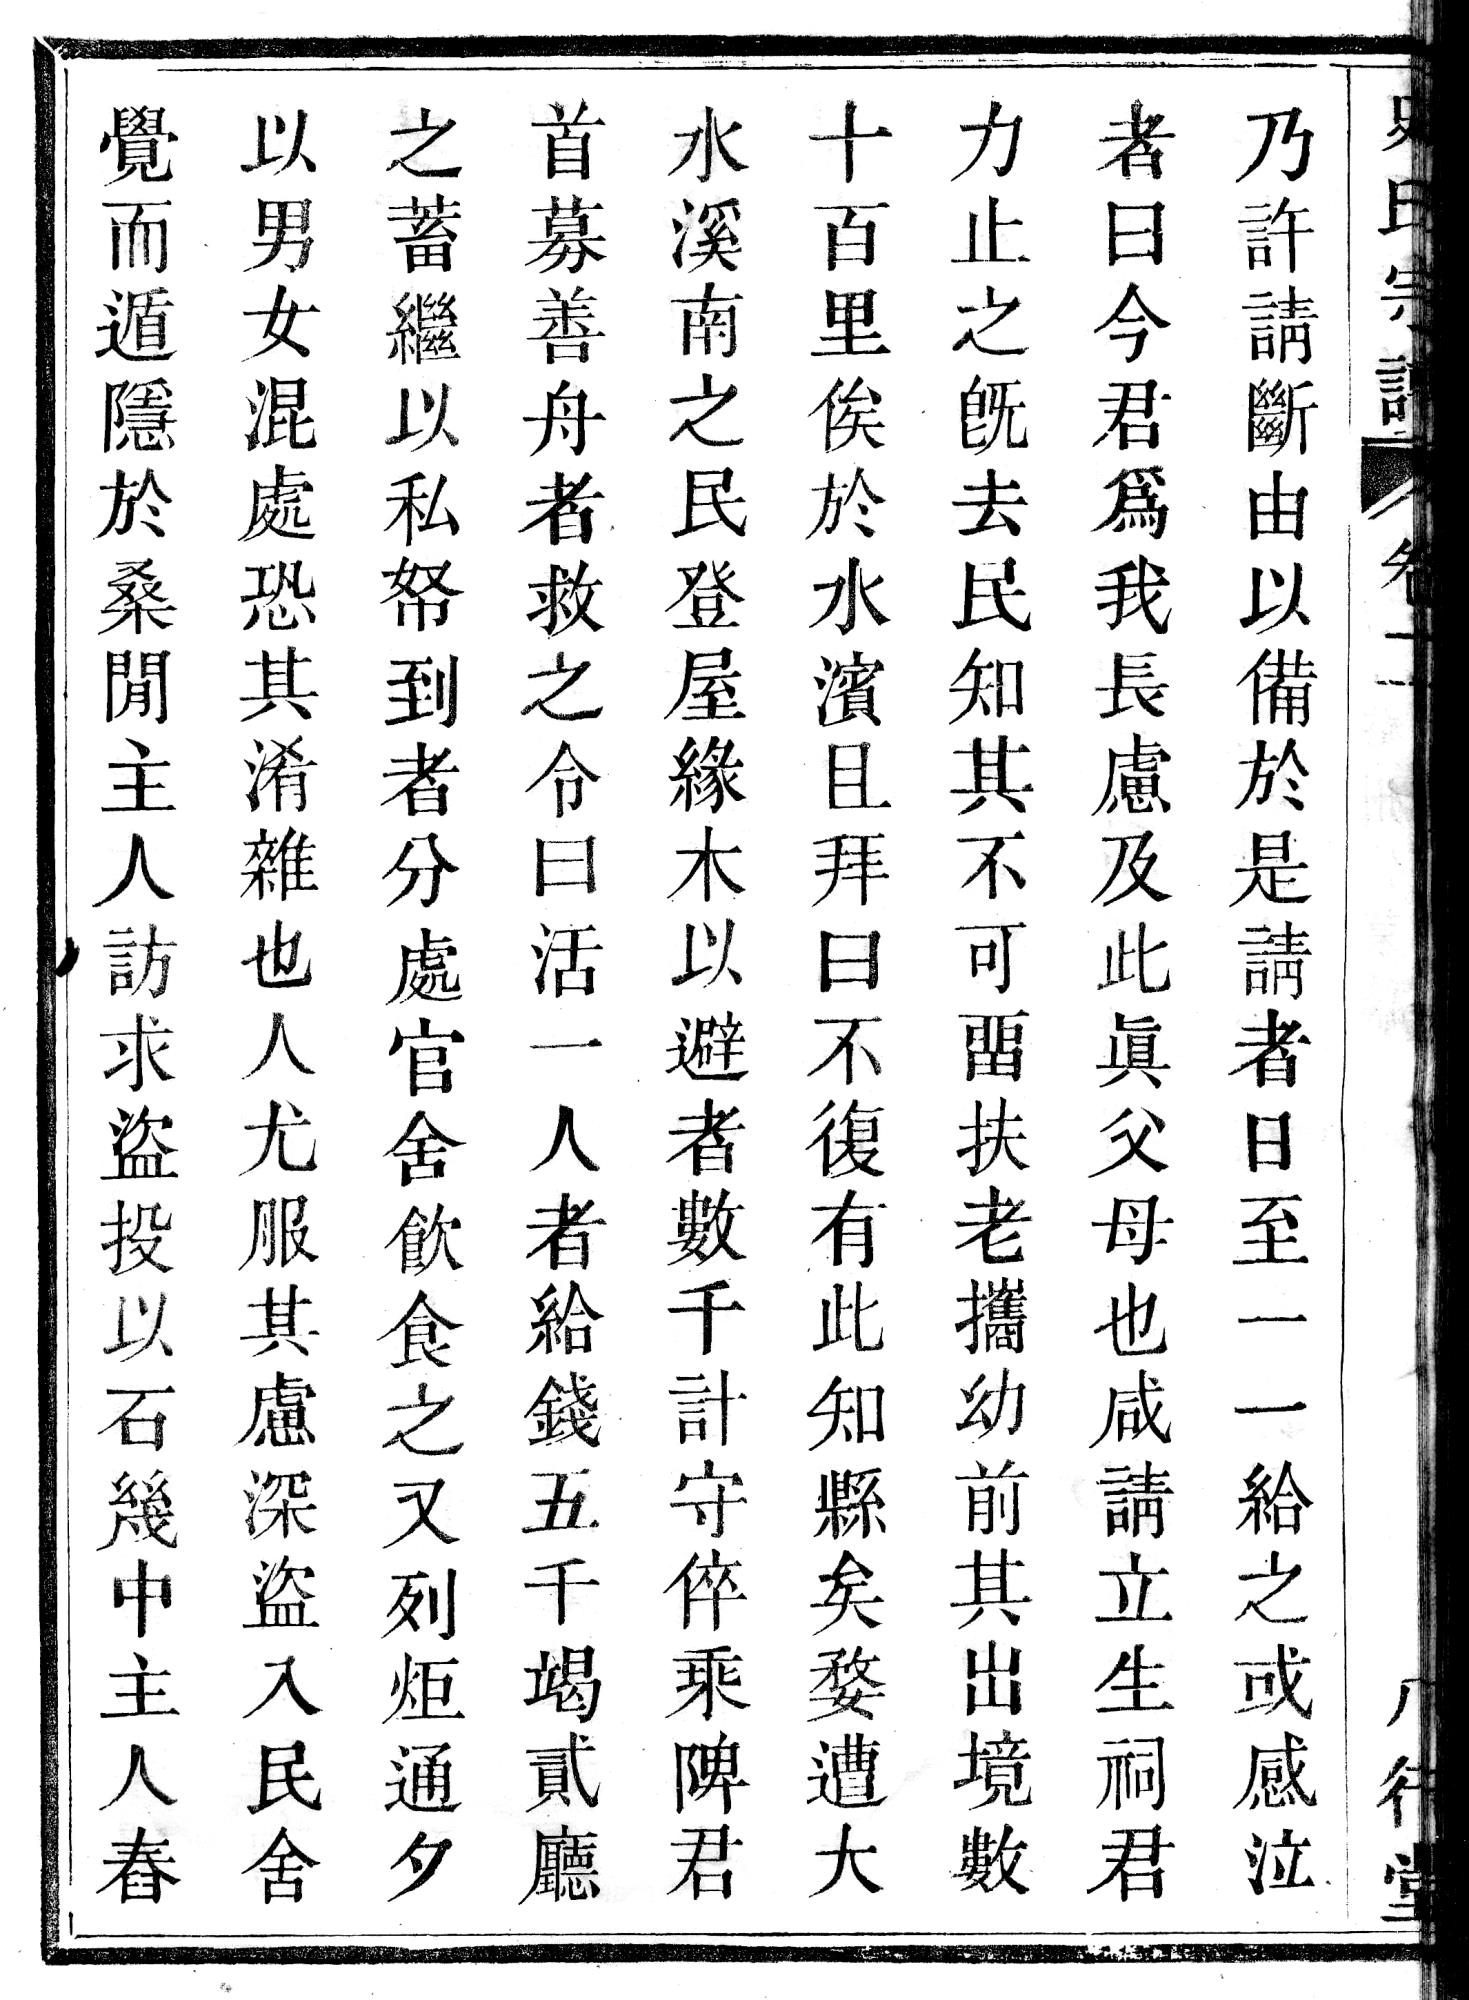 史氏宗譜 卷十一 八行堂
乃許請斷由以備於是請者日至一一給之或感泣
者曰今君爲我長慮及此眞父母也咸請立生祠君
力止之旣去民知其不可畱扶老攜幼前其出境數
十百里俟於水濱且拜曰不復有此知縣矣婺遭大
水溪南之民登屋緣木以避者數千計守倅乘陴君
首募善舟者救之令曰活一人者給錢五千竭貳廳
之蓄繼以私帑到者分處官舍飮食之又列炬通夕
以男女混處恐其淆雜也人尤服其慮深盜入民舍
覺而遁隱於桑閒主人訪求盜投以石幾中主人舂